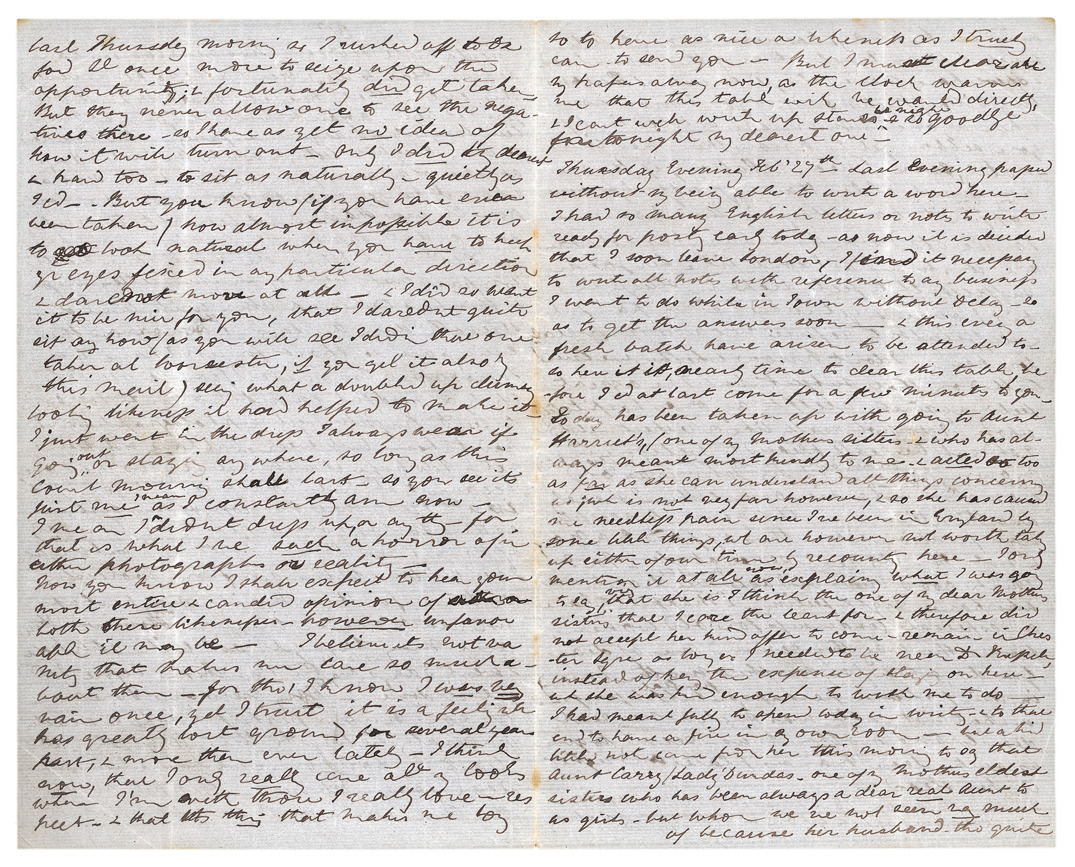 last Thursday morning so I rushed off
for Sd once more to seize upon the
opportunity, & fortunately did get taken
But they never allow one to see the nega-
tives there - so I have as yet no idea of
how it will turn out - only I did try
& hard too - to sit as naturally - quietly as
I cd - But you know (if you have ever
been taken) how almost impossible it is
to look natural when you have to keep
yr eyes fixed in any particular direction
& dare not move at all - & I did so want
it to be nice for you, that I daredn't quite
sit any how (as you will see I did in that one
taken at Worcester, if you get it also by
this mail) seeing what a doubled up clumsy
looking likeness it had helped to make it
I just went in the dress I always wear if
going out, or staying any where, so long as this
court mourning shall last - so you see its
just me as I constantly am now -
I mean I didn't dress up, or any thing for
that is what I've such a horror of in
either photographs or reality -
Now you know I shall expect to hear your
most entire & candid opinion of
both these likenesses - however unfavor
able it may be - I believe its not va
nity that makes me care so much a-
bout them - for tho' I know I was very
vain once, yet I trust it is a feeling
has greatly lost ground for several years
past, & more than ever lately - I think
now, that I only really care all my looks
when I'm with those I really love - res
pect - & that its this that makes me long
so to have as nice a likeness as I truly
can to send you - But I must clear all
my papers away now, as the clock warns
me that this table will be wanted directly,
& I can't well write up stairs so goodbye
for tonight my dearest one -
Thursday Evening Feb 27th Last Evening passed
without my being able to write a word here
I had so many English letters or notes to write
ready for posting early today - as now it is decided
that I soon leave London, I find it necessary
to write all notes with reference to any business
I want to do while in Town without delay - so
as to get the answers soon - & this eveng a
fresh batch have arisen to be attended to -
so here it is nearly time to clear this table, be
fore I cd at last come for a few minutes to you
Today has been taken up with going to Aunt
Harriet's, (one of my Mothers sisters - & who has al-
ways meant most kindly to me - & acted so too
as far as she can understand all things concerning
us, just is not very far however, & so she has caused
me needless pain since I've been in England by
some little things, wt are however not worth tak
up either of our time by recounting here - I only
mention it at all now, as explaing what I was going
to say, that she is I think the one of my dear Mothers
sisters that I care the least for - & therefore did
not accept her kind offer to come - remain in Ches
ter Sqre as long as I needed to be near Dr
instead of being the expense of staying on here -
wt she was kind enough to wish me to do
I had meant fully to spend today in writing & to that
end to have a fire in my own room - but a kind
little note came from her this morning to say that
Aunt Carry (Lady Dundas - one of my mothers eldest
sisters who has been always a dear real Aunt to
us girls - but whom we've not seen very much
of because her husband - tho quite